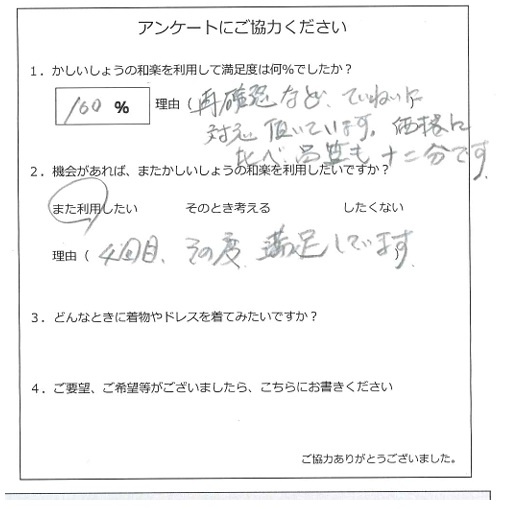 アンケートにご協力ください
1．かしいしょうの和楽を利用して満足度は何%でしたか？
100 % 理由（再確認など、ていねいに
対応頂いています。価格に
比べ品質も十二分です
2．機会があれば、またかしいしょうの和楽を利用したいですか？
また利用したい そのとき考える したくない
理由（4回目、その度満足しています
3．どんなときに着物やドレスを着てみたいですか？
4．ご要望、ご希望等がございましたら、こちらにお書きください
ご協力ありがとうございました。